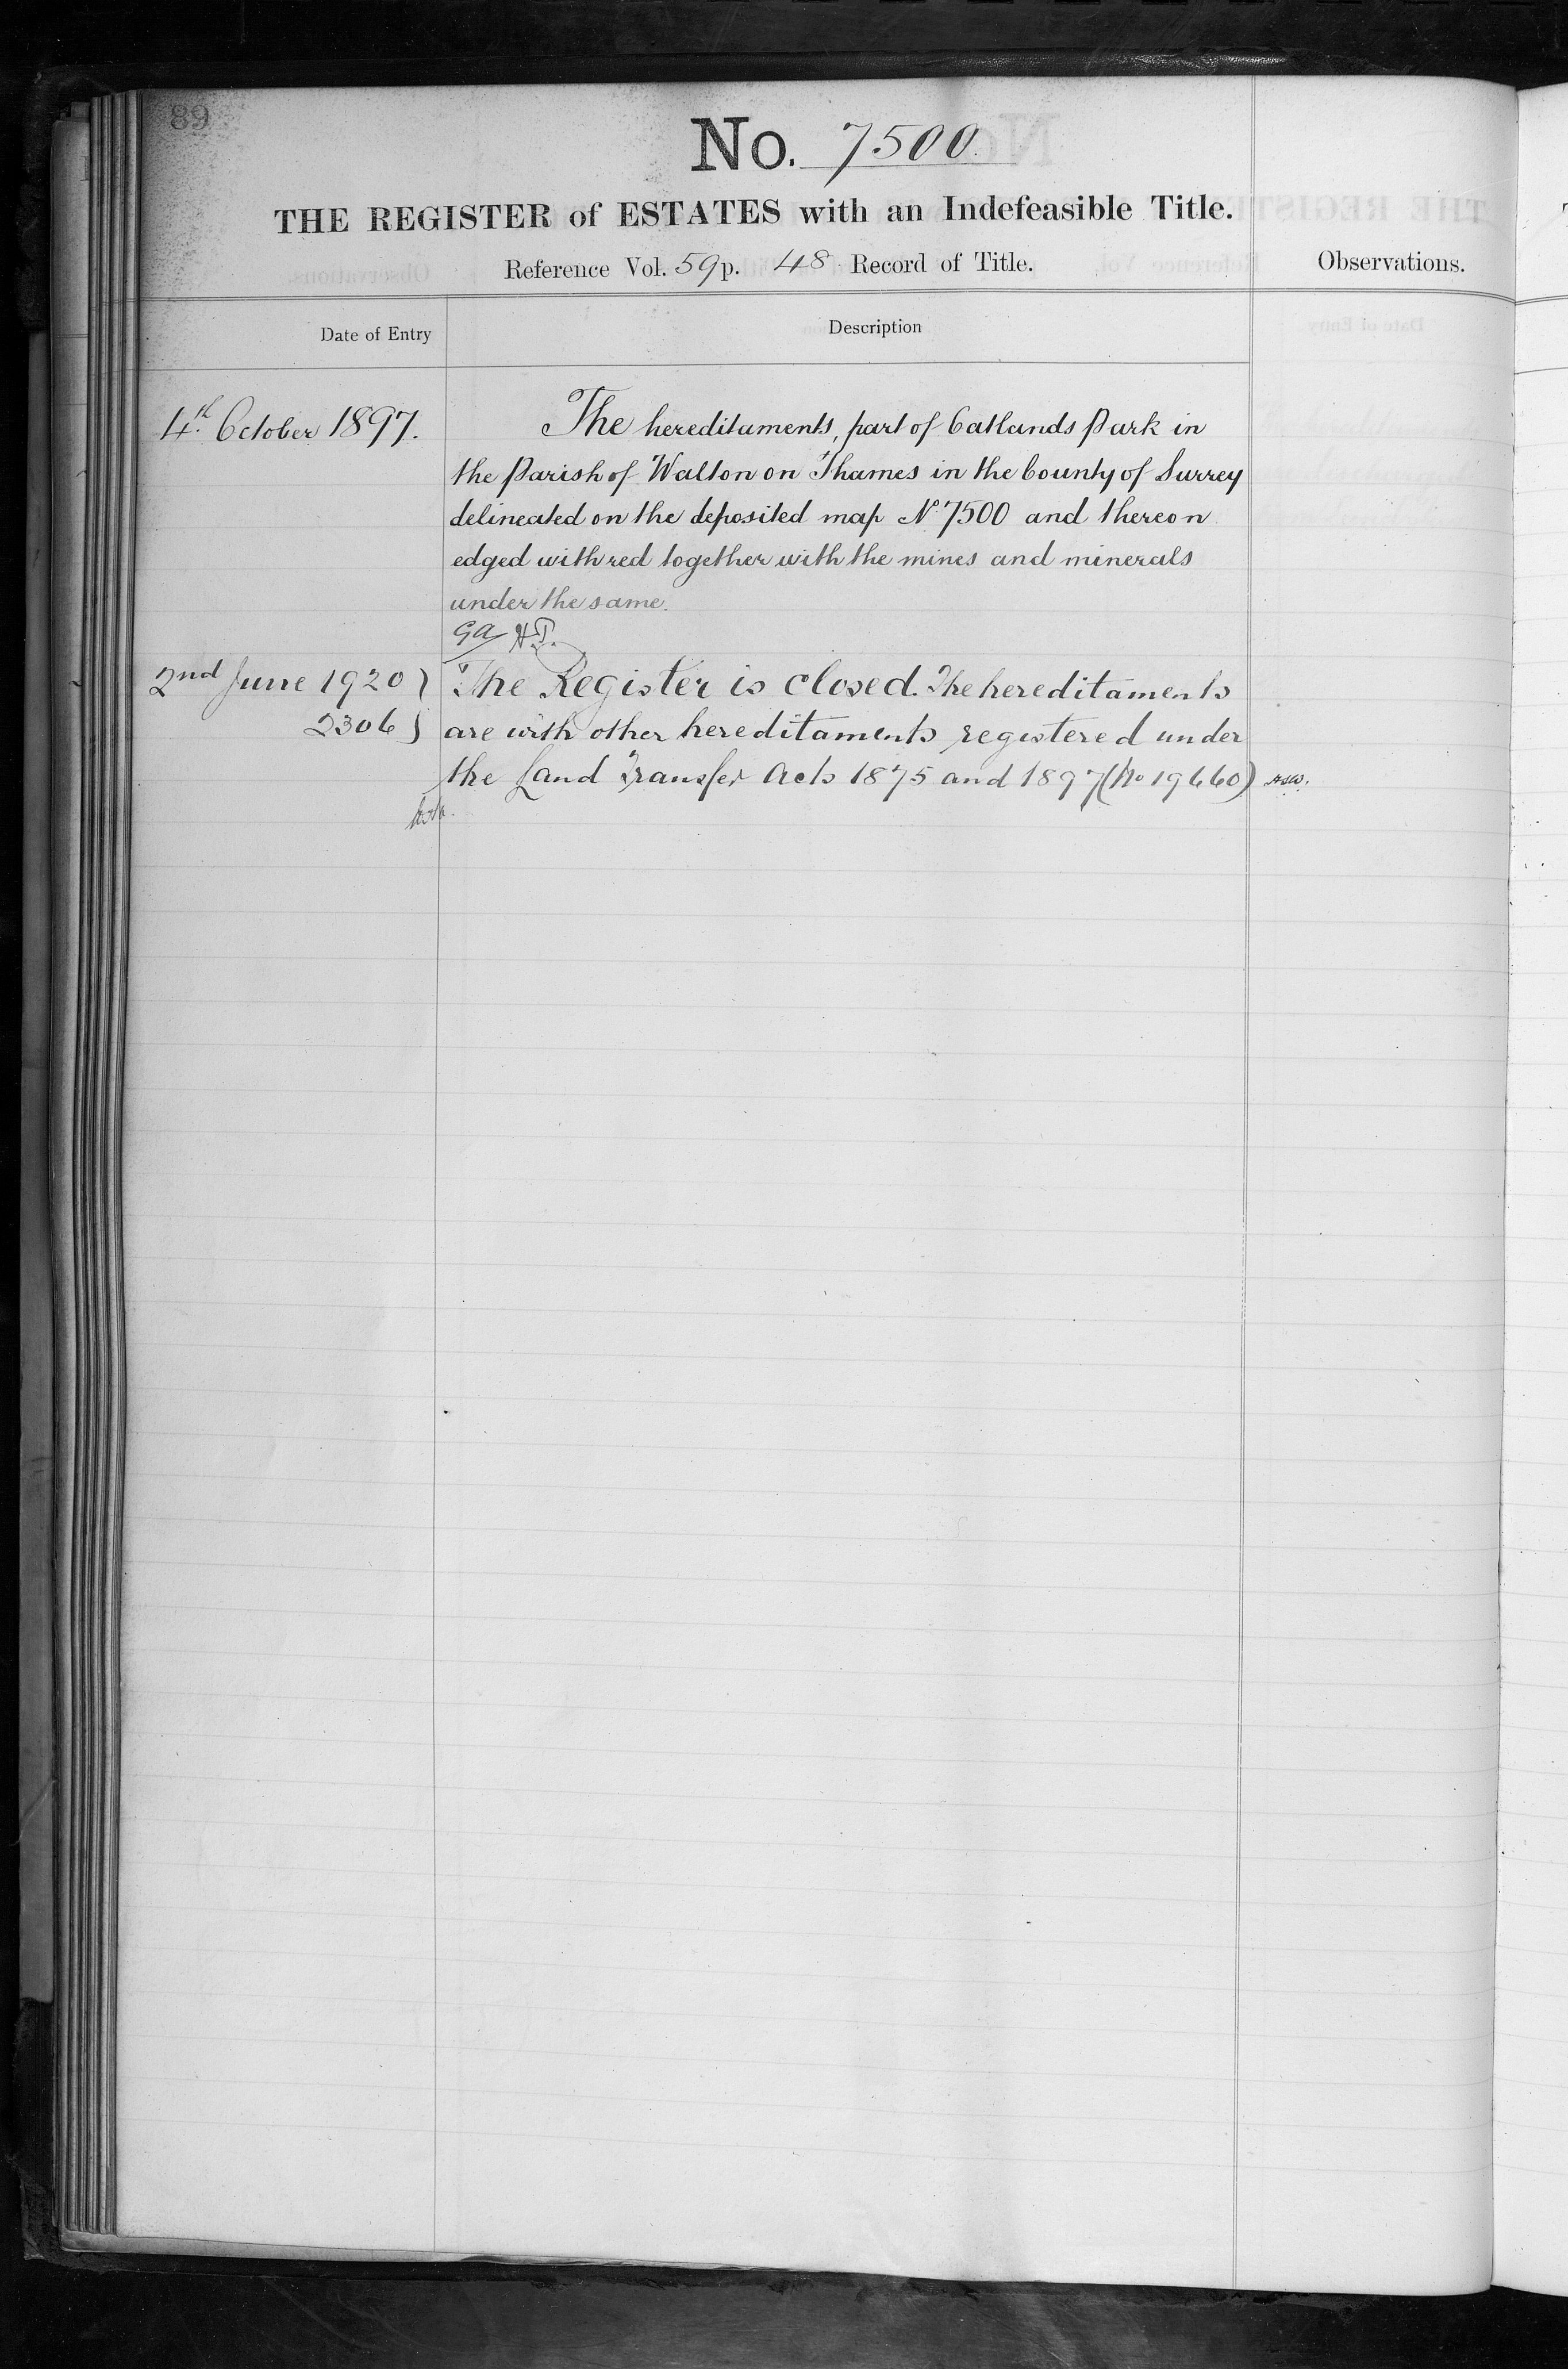 89
No. 7500.
THE REGISTER of ESTATES with an Indefeasible Title.
Reference Vol. 59 p. 48 Record of Title.
Observations.
Date of Entry
Description
4th October 1897.
The hereditaments, part of Oatlands Park in
the Parish of Walton on Thames in the County of Surrey
delineated on the deposited map No. 7500 and thereon
edged with red together with the mines and minerals
under the same.
GA HT.
2nd June 1920 }
2306 }
The Register is closed. The hereditaments
are with other hereditaments registered under
the Land Transfer Acts 1875 and 1897 (No 19660)